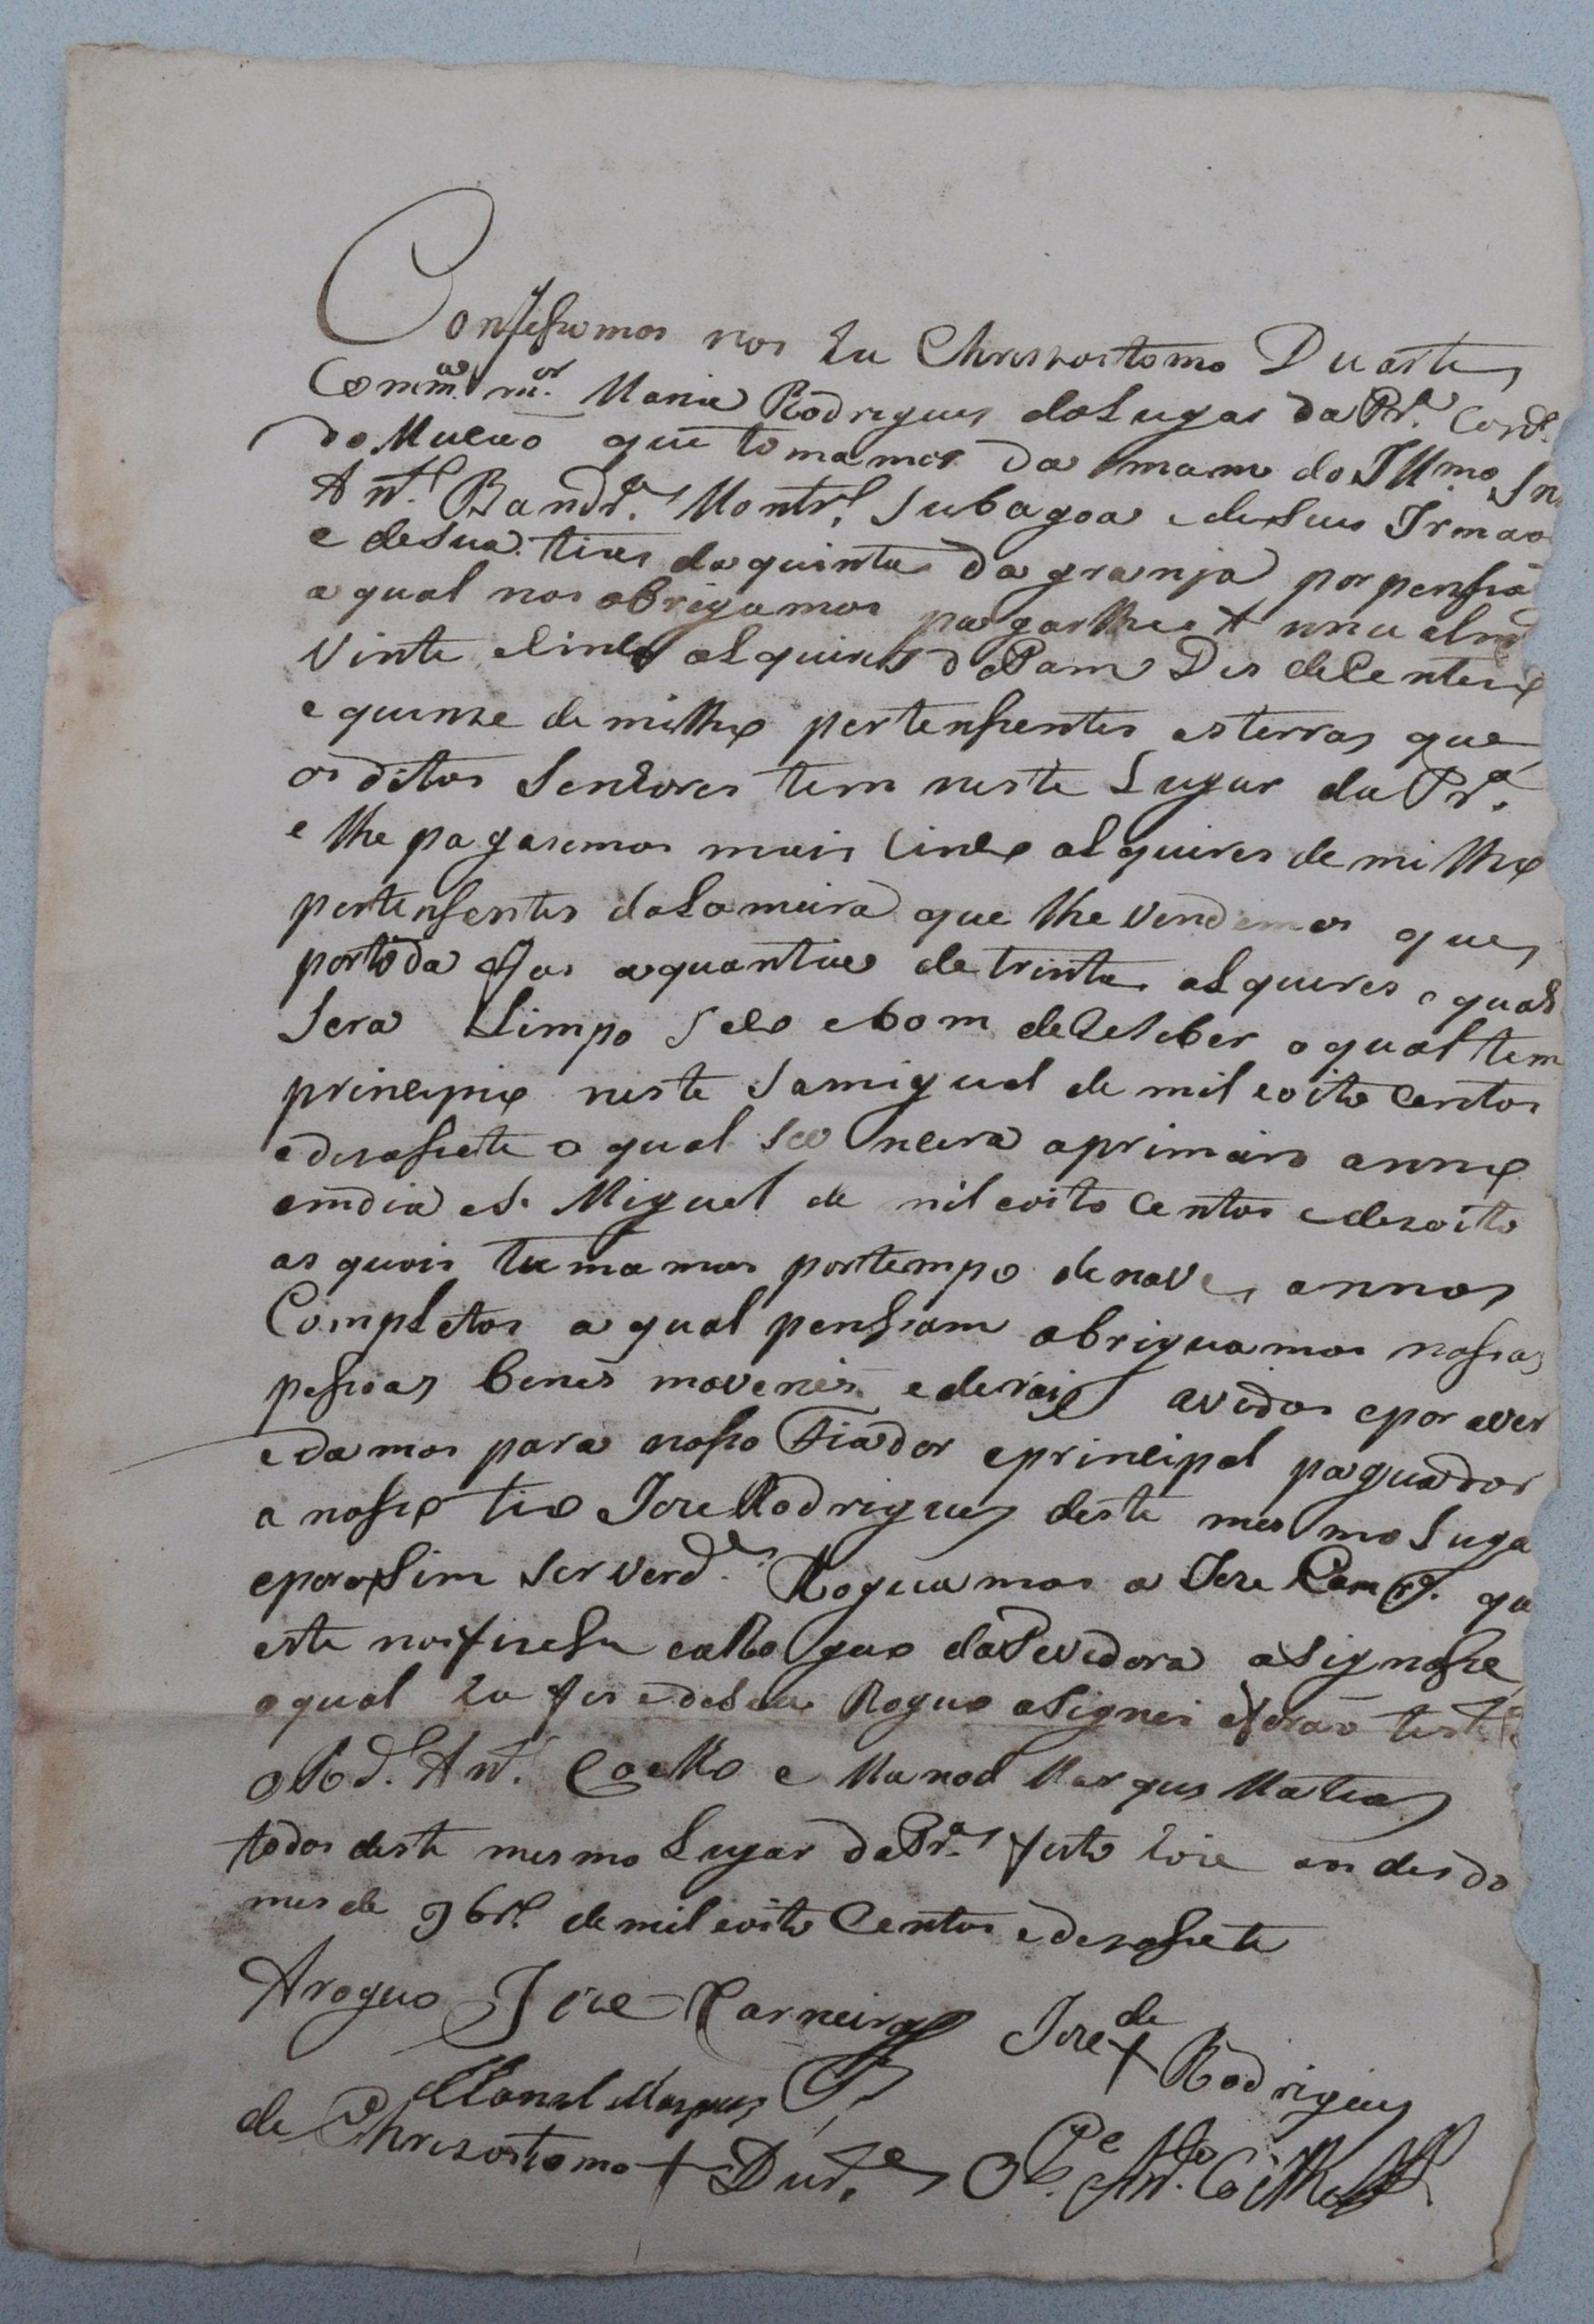 Confesumos nos Eu Chrisostomo Duarte
Com m.ª m.er Maria Rodrigues do Lugar da Pr.ª Conc.º
do Mucão que tomamos da mam do Ill.mo Sn.
Ant.º Band.ª Montr.º Subagoa e de seus Irmao
e de sua tia da quinta da granja por pensiã
a qual nos obrigamos pagarlhe A nnu alm.
Vinte e Sinco alquires de Pam Des de Centeio
e quinze de milho pertensentes as terras que
os ditos Senhores tem neste Lugar da Pr.ª
e lhe pagaremos mais Sinco alquires de milho
pertensentes da Lameira que lhe vendemos que
por toda fas a quantia de trinta alquires o qual
Sera Limpo Seco e bom de Reseber o qual tem
principio neste Samigual de mil e oito Centos
e desasete o qual se vencera o primeiro anno
em dia de S. Miguel de mil e oito Centos e desoito
as quais tumamos por tempo de nove annos
Completos a qual pensiam obriguamos nosas
pesoas benes movenes e de rais avidos e por aver
e damos para noso Fiador e principal paguador
a noso tio Joze Rodrigues deste mesmo Luga
e por asim ser verd.e Roguamos a Joze Carnr.º qu
este nos fizese e a Roguo da devedora asignase
o qual Eu fis e de seu Roguo asignei e forão test.
o R.do Ant.º Coelho e Manoel Marques Matias
todos deste mesmo Lugar da Pr.ª feito hoie aos des do
mes de 9br.º de mil e oito Centos e desasete
Aroguo Joze Carneiro
Joze de + Rodrigues
Manoel Marques
de Chrisostomo + Duarte
O P.e Ant.º Coelho